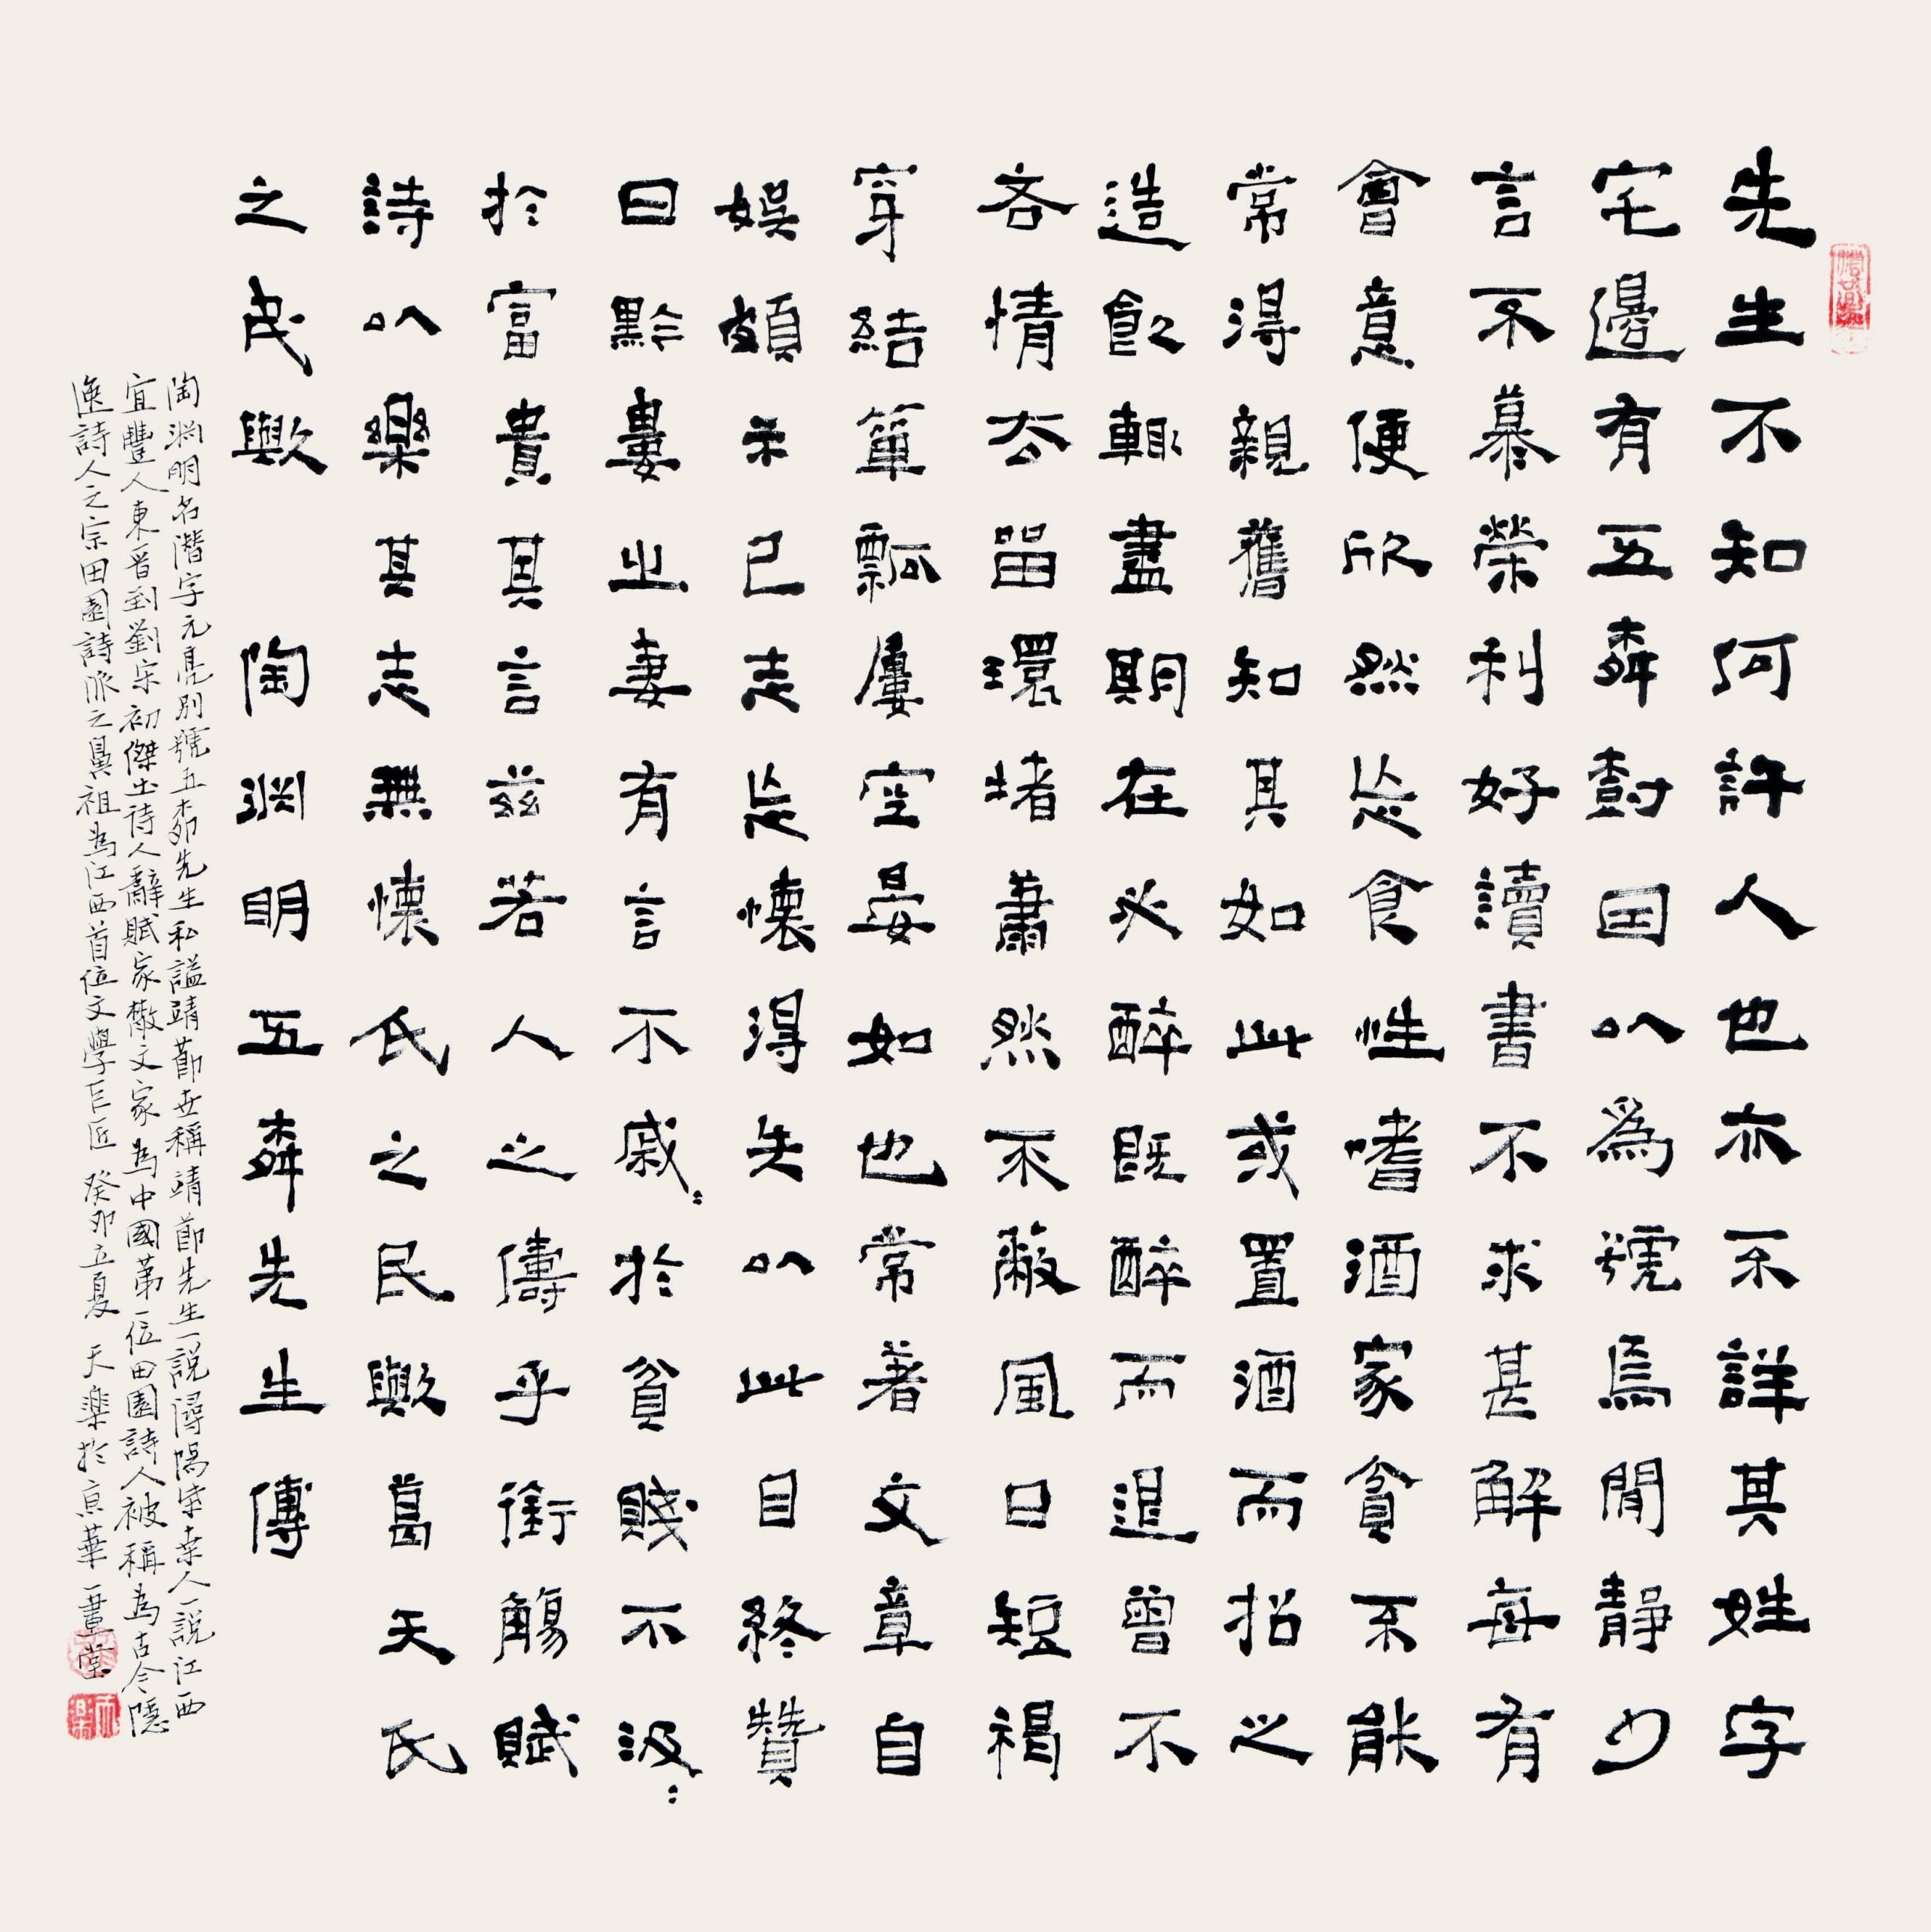 先生不知何許人也亦不詳其姓字
宅邊有五桺樹因以爲號焉閒靜少
言不慕榮利好讀書不求甚解每有
會意便欣然忘食性嗜酒家貧不能
常得親舊知其如此或置酒而招之
造飲輒盡期在必醉既醉而退曾不
吝情去留環堵蕭然不蔽風日短褐
穿結簞瓢屢空晏如也常著文章自
娛頗示己志忘懷得失以此自終贊
曰黔婁之妻有言不戚〻於貧賤不汲〻
於富貴其言茲若人之儔乎銜觴賦
詩以樂其志無懷氏之民歟葛天氏
之民歟 陶淵明五桺先生傳
陶淵明名潛字元亮別號五桺先生私謚靖節世稱靖節先生一說潯陽柴桑人一說江西
宜豐人東晉到劉宋初傑出詩人辭賦家散文家為中國第一位田園詩人被稱為古今隱
逸詩人之宗田園詩派之鼻祖為江西首位文學巨匠 癸卯立夏 天樂於京華一畫堂
天樂